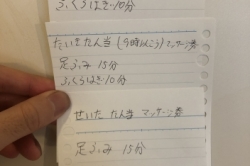 ふくらはぎ・10分
たいきたん当(今時いこう)マッサージ券
足ふみ 15分
ふくらはぎ・10分
せいた たん当 マッサージ券
足ふみ 15分